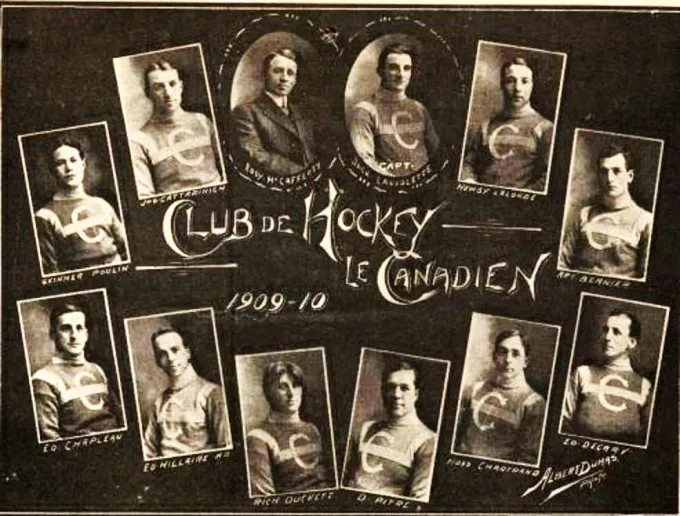 EDDY McCAFFERTY
CAPT.
JACK LAVIOLETTE
JOE CATTARINICH
NEWSY LALONDE
SKINNER POULIN
ART BERNIER
CLUB DE HOCKEY
LE CANADIEN
1909-10
ED CHAPLEAU
ED MILLAIRE
RICH DUCKETT
D. PITRE
NOSS CHARTRAND
ED DECARY
ALBERT DUMAS.
C
C
C
C
C
C
C
C
C
C
C